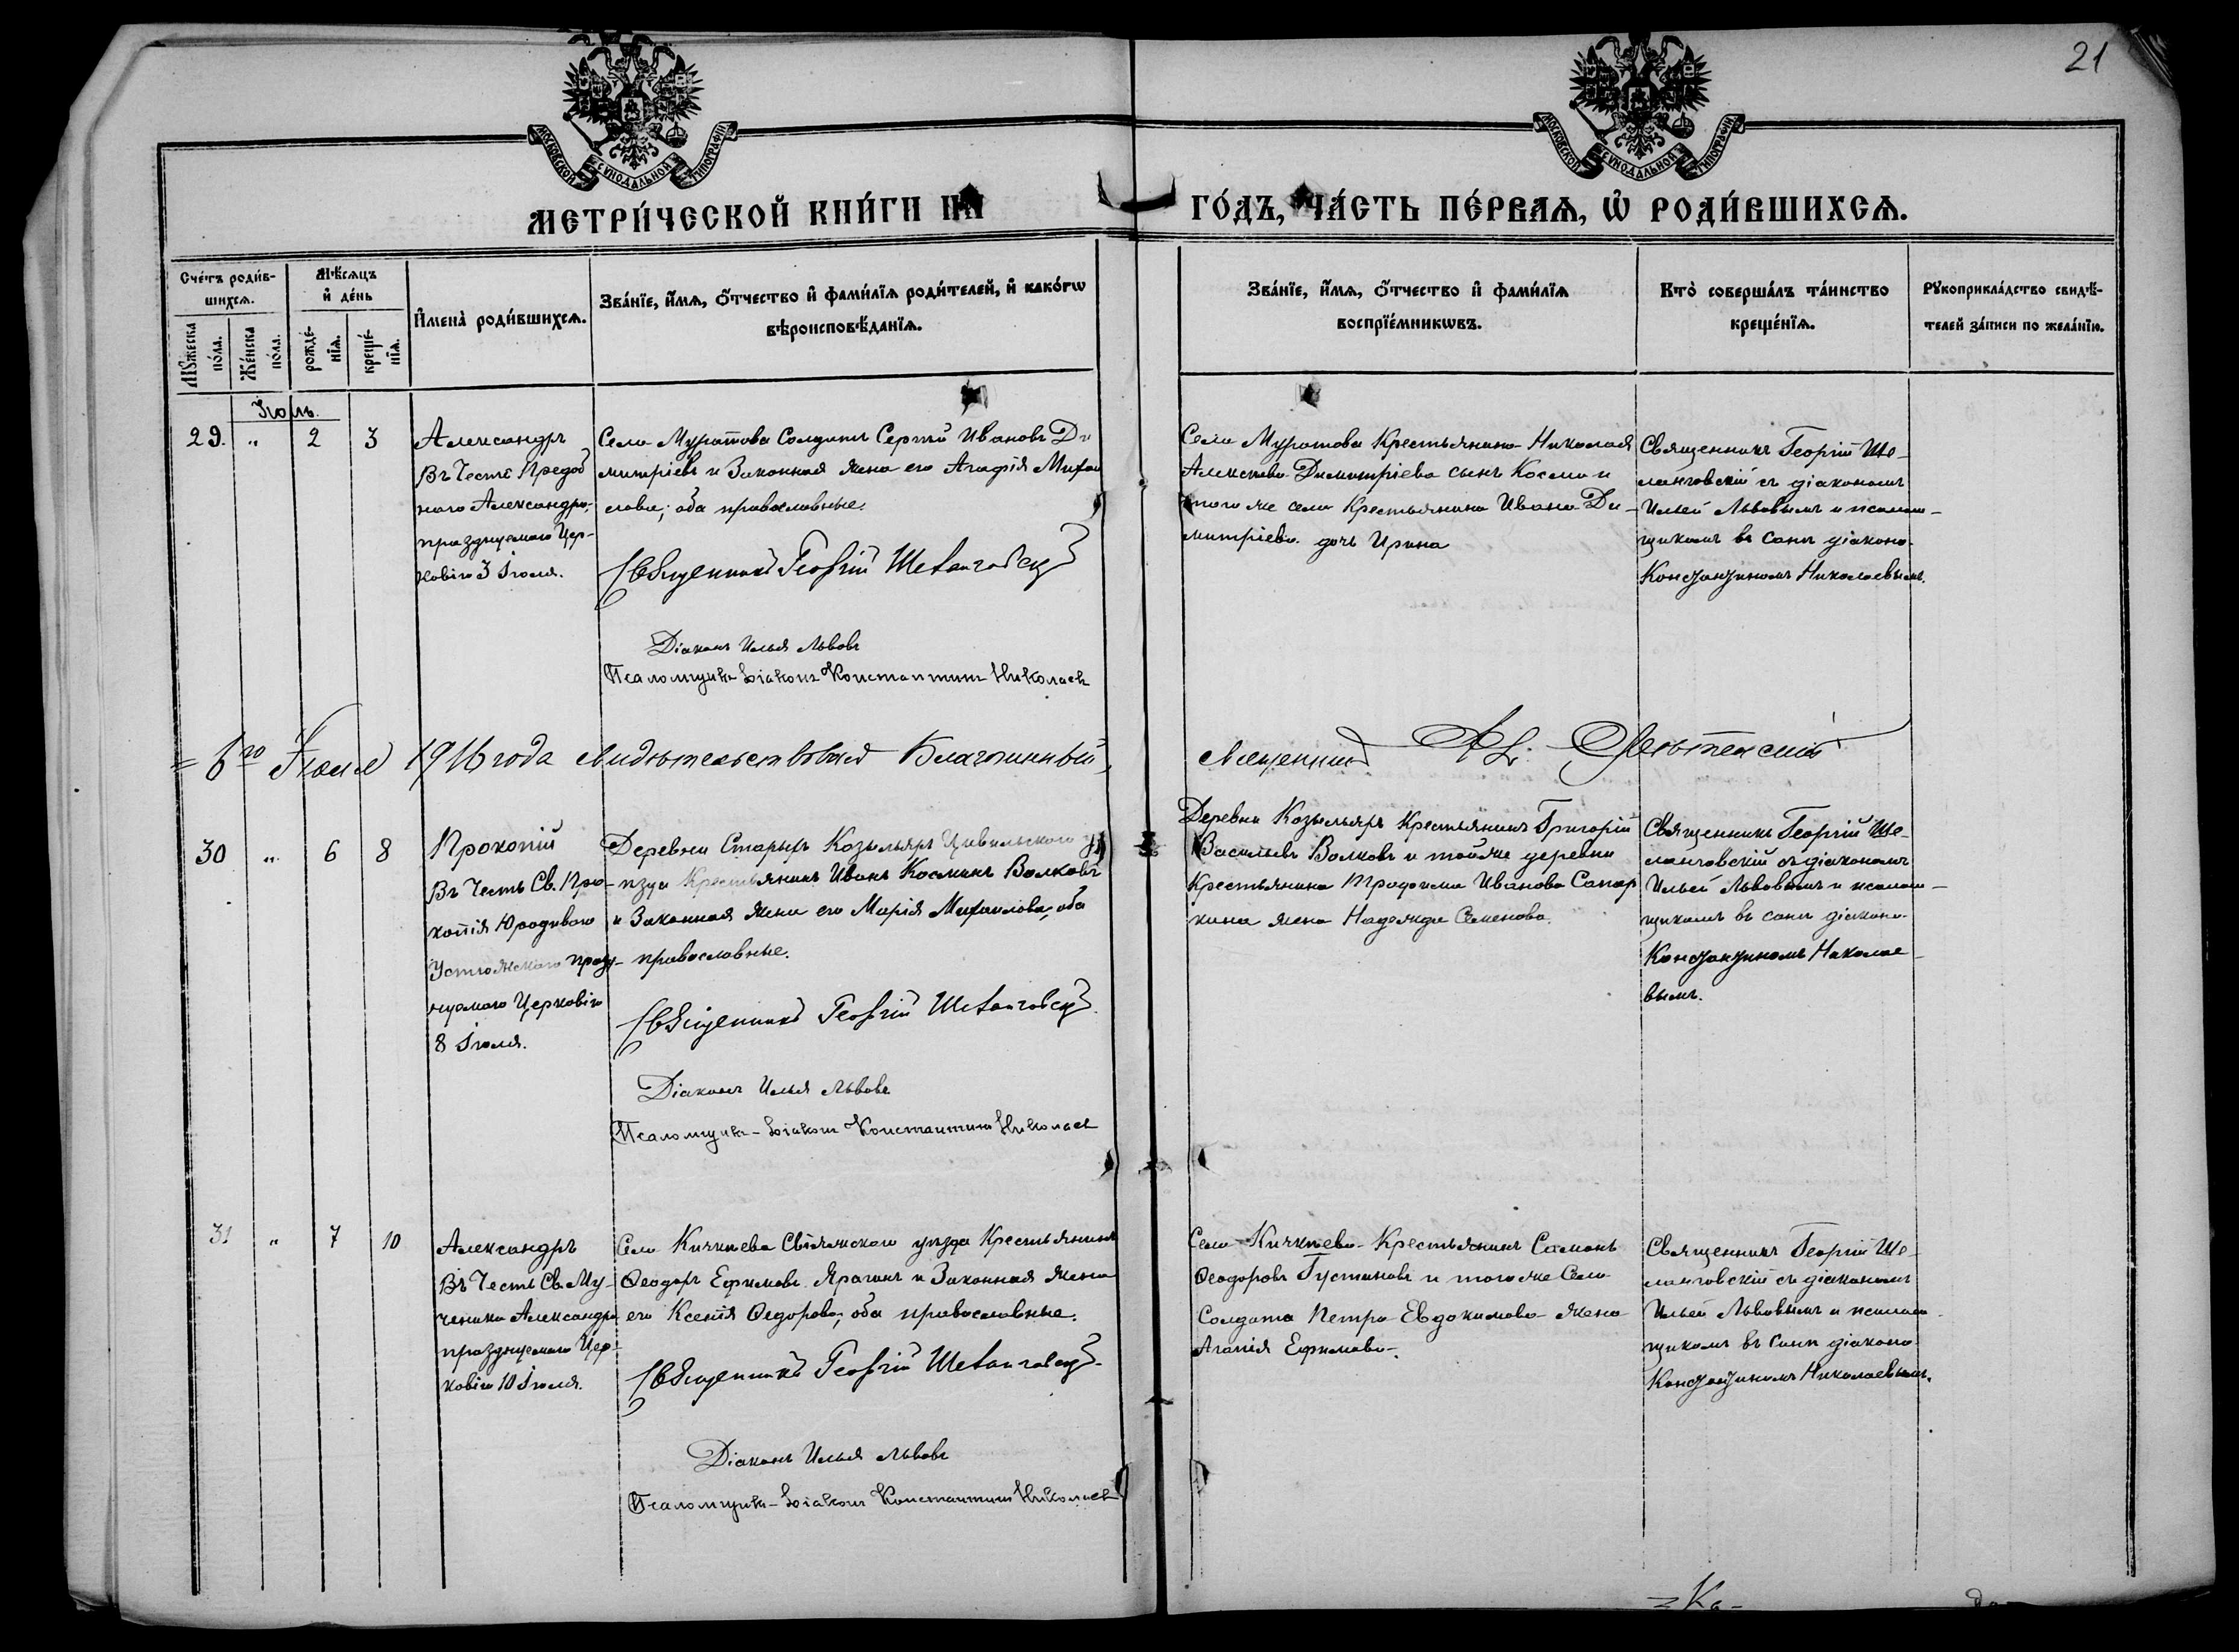 21
МОСКОВСКОЙ СѴНОДАЛЬНОЙ ТИПОГРАФІИ
МОСКОВСКОЙ СѴНОДАЛЬНОЙ ТИПОГРАФІИ
МЕТРИ́ЧЕСКОЙ КНИ́ГИ НА ГО́ДЪ, ЧА́СТЬ ПЕ́РВАѦ, Ѡ҆ РОДИ́ВШИХСѦ.
Сче́тъ роди́в-
шихсѧ.
Мꙋ́жеска по́ла.
Же́нска по́ла.
Мѣ́сѧцъ
и҆ де́нь
рожде́-
нїѧ.
креще́-
нїѧ.
И҆мена̀ роди́вшихсѧ.
Зва́нїе, и҆́мѧ, ѻ҆́тчество и҆ фами́лїѧ роди́телей, и҆ како́гѡ
вѣроисповѣ́данїѧ.
Зва́нїе, и҆́мѧ, ѻ҆́тчество и҆ фами́лїѧ
воспрїе́мникѡвъ.
Кто̀ соверша́лъ та́инство
креще́нїѧ.
Рꙋкоприкла́дство свидѣ́-
телей за́писи по жела́нїю.
Іюль.
29. " 2 3
Александръ
Въ Честь Преподоб
наго Александра,
празднуемаго Цер-
ковію 3 Іюля.
Села Муратова Солдатъ Сергѣй Ивановъ Ди
митріевъ и Законная жена его Агафія Михаи
лова, оба православные.
Священникъ Георгій
Діаконъ Илья Львовъ
Псаломщикъ-діаконъ Константинъ Николаевъ
Села Муратова Крестьянина Николая
Алексѣева Димитріева сынъ Косма и
того же села Крестьянина Ивана Ди-
митріева дочь Ирина
Священникъ Георгій Ше-
съ діакономъ
Ильей Львовымъ и псалом-
щикомъ въ санѣ діакона
Константиномъ Николаевымъ.
6го Іюля 1916 года свидѣтельствовалъ Благочинный,
Священникъ
30 " 6 8
Прокопій
Въ Честь Св. Про-
копія Юродиваго
Устюжскаго празд-
нуемаго Церковію
8 Іюля.
Деревни Старыхъ Козыльяръ Цивильскаго у
ѣзда Крестьянинъ Иванъ Косминъ Волковъ
и Законная жена его Марія Михаилова, оба
православные.
Священникъ Георгій
Діаконъ Илья Львовъ
Псаломщикъ-діаконъ Константинъ Николаевъ
Деревни Козыльяръ Крестьянинъ Григорій
Васильевъ Волковъ и той же деревни
Крестьянина Трофима Иванова Сапар
кина жена Надежда Семенова.
Священникъ Георгій Ше-
съ діакономъ
Ильей Львовымъ и псалом-
щикомъ въ санѣ діакона
Константиномъ Николае-
вымъ.
31 " 7 10
Александръ
Въ Честь Св. Му-
ченика Александра
празднуемаго Цер-
ковію 10 Іюля.
Села Кичкѣева Свіяжскаго уѣзда Крестьянинъ
Ѳеодоръ Ефимовъ Ярагинъ и Законная жена
его Ксенія Ѳедорова, оба православные.
Священникъ Георгій
Діаконъ Илья Львовъ
Псаломщикъ-діаконъ Константинъ Николаевъ
Села Кичкѣева Крестьянинъ Самонъ
Ѳеодоровъ Густиновъ и того же Села
Солдата Петра Евдокимова жена
Агапія Ефимова.
Священникъ Георгій Ше-
съ діакономъ
Ильей Львовымъ и псалом-
щикомъ въ санѣ діакона
Константиномъ Николаевымъ.